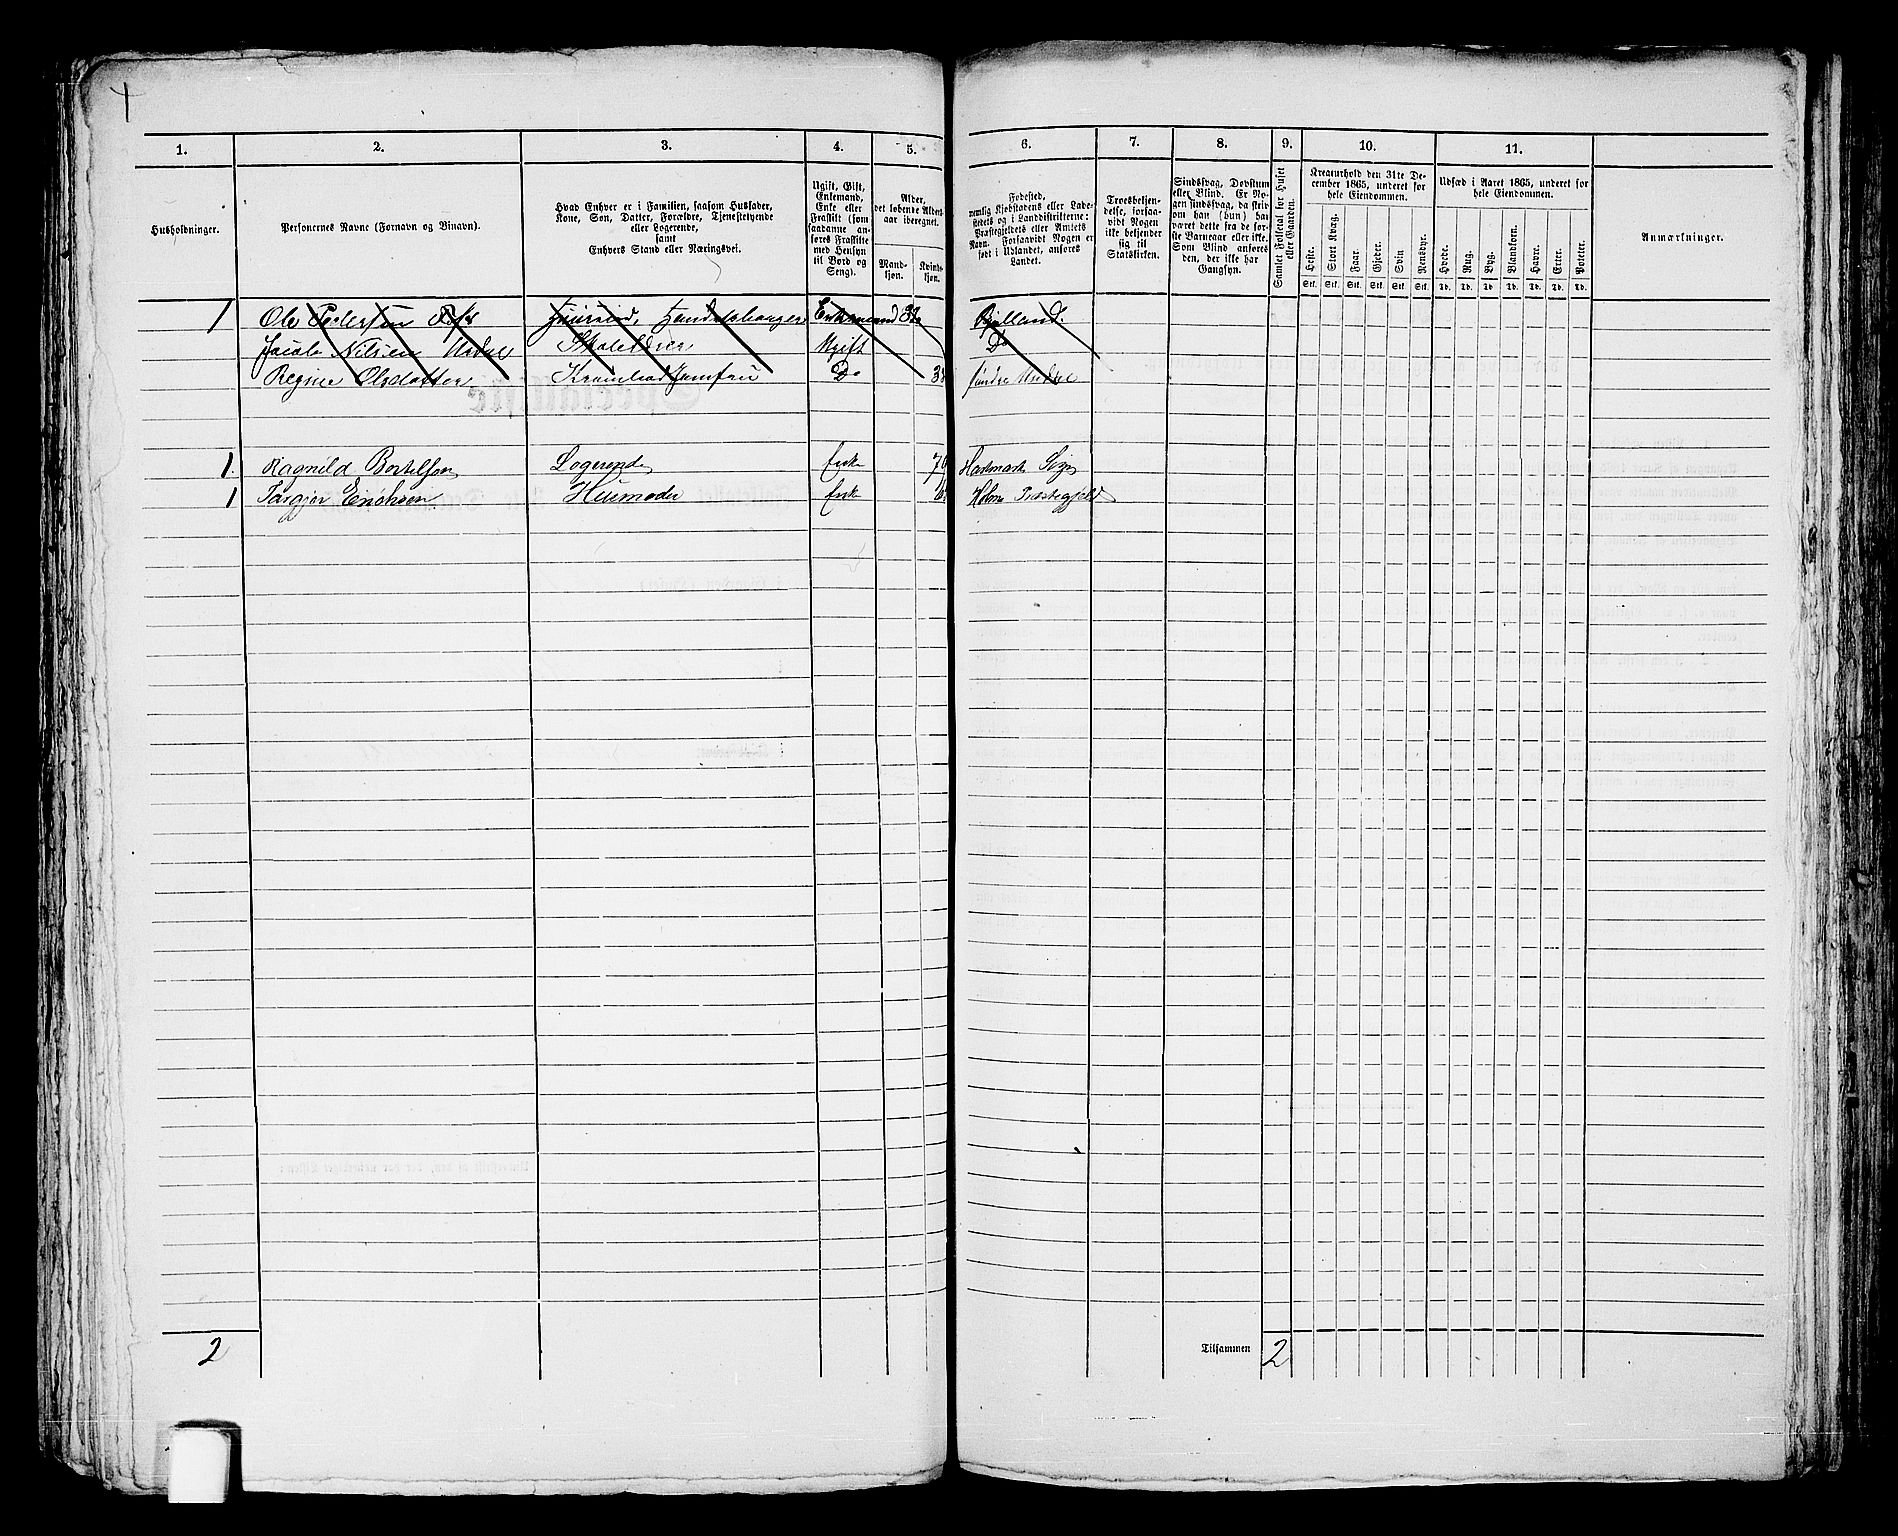 1. 2. 3. 4. 5. 6. 7. 8. 9. 10. 11.
Husholdninger.
Personernes Navne (Fornavn og Binavn).
Hvad Enhver er i Familien, saasom Husfader,
Kone, Søn, Datter, Forældre, Tjenestetyende
eller Logerende,
samt
Enhvers Stand eller Næringsvei.
Ugift, Gift,
Enkemand,
Enke eller
Fraskilt (som
saadanne an-
føres Fraskilte
med Hensyn
til Bord og
Seng).
Alder,
det løbende Alders-
aar iberegnet.
Mand-
kjøn.
Kvind-
kjøn.
Fødested,
nemlig Kjøbstadens eller Lade-
stedets og i Landdistrikterne:
Præstegjeldets eller Amtets
Navn. Forsaavidt Nogen er
født i Udlandet, anføres
Landet.
Troesbekjen-
delse, forsaa-
vidt Nogen
ikke bekjender
sig til
Statskirken.
Sindssvag, Døvstum
eller Blind. Er No-
gen sindssvag, da skriv
om han (hun) har
været dette fra de før-
ste Barneaar eller ikke.
Som Blind anføres
den, der ikke har
Gangsyn.
Samlet Folketal for Huset
eller Gaarden.
Kreaturhold den 31te De-
cember 1865, underet for
hele Eiendommen.
Heste. Stort Kvæg. Faar. Gjeder. Svin Rensdyr.
Stk. Stk. Stk. Stk. Stk. Stk.
Udsæd i Aaret 1865, underet for
hele Eiendommen.
Hvede. Rug. Byg. Blandkorn. Havre. Erter. Poteter.
Td. Td. Td. Td. Td. Td. Td.
Anmærkninger.
1 Ole Pedersen Handelsborger Enkemand
Jacob Nilsen Skolelærer Ugift Do
Regine Olsdatter Jomfru Do
1. Ragnild Bertelsen Logerende Enke
1 Enke Holme Præstegjeld
2
Tilsammen 2